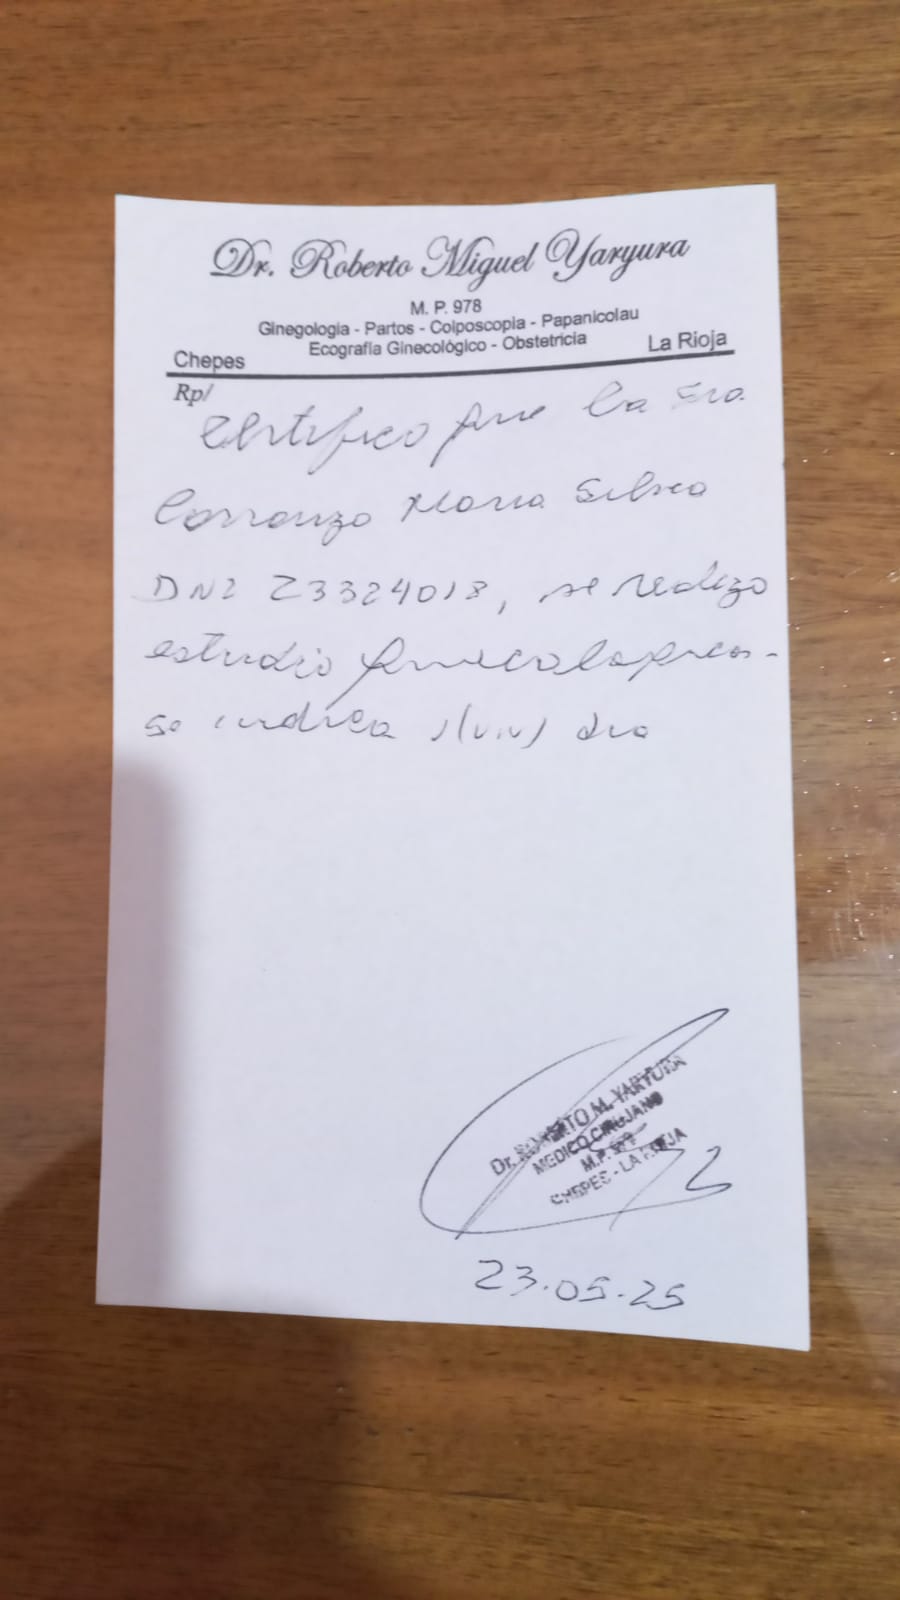 Dr. Roberto Miguel Yaryura
M. P. 978
Ginegologia - Partos - Colposcopia - Papanicolau
Ecografía Ginecológico - Obstetricia
Chepes La Rioja
Rp/
Certifico que la Sra.
Carranza Maria Silvia
DNI 23324018, se realizo
estudio ginecologicos -
se indica 1(un) dia
Dr. ROBERTO M. YARYURA
MEDICO CIRUJANO
M.P.
CHEPES - LA RIOJA
23.05.25